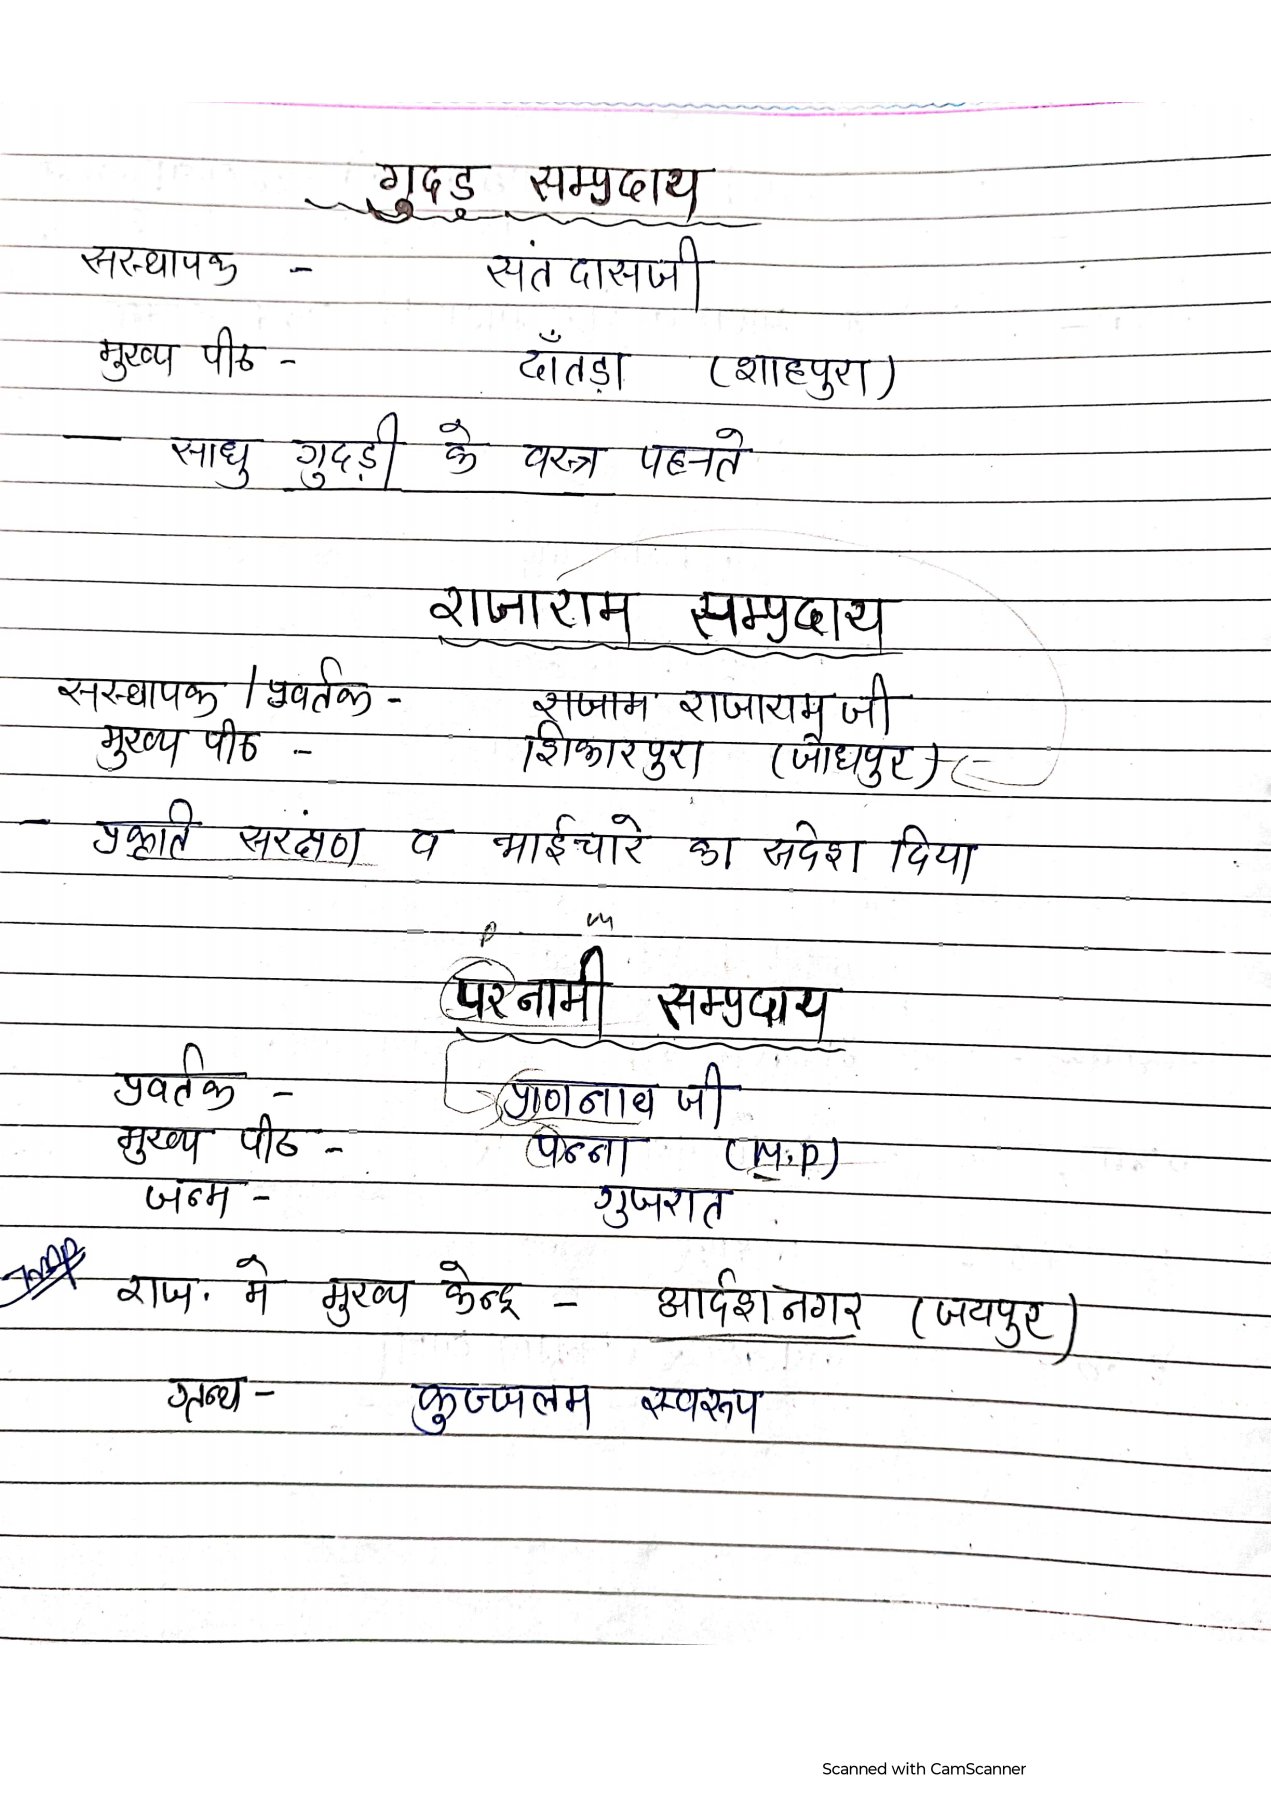 गुदड़ सम्प्रदाय
सस्थापक - संतदासजी
मुख्य पीठ - दाँतड़ा (शाहपुरा)
— साधु गुदड़ी के वस्त्र पहनते
राजाराम सम्प्रदाय
सस्थापक / प्रवर्तक - राजाराम जी
मुख्य पीठ - शिकारपुरा (जोधपुर)
- प्रकृति सरक्षंण व भाईचारे का संदेश दिया
P m
परनामी सम्प्रदाय
प्रवर्तक - प्राणनाथ जी
मुख्य पीठ - पन्ना (M.P)
जन्म - गुजरात
Imp राज. मे मुख्य केन्द्र - आर्दशनगर (जयपुर)
ग्रन्थ - कुज्जलम स्वरूप
Scanned with CamScanner